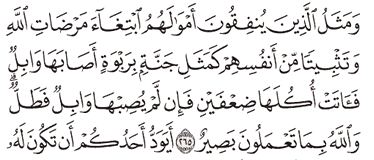 وَمَثَلُ ٱلَّذِينَ يُنفِقُونَ أَمْوَٰلَهُمُ ٱبْتِغَآءَ مَرْضَاتِ ٱللَّهِ
وَتَثْبِيتًا مِّنْ أَنفُسِهِمْ كَمَثَلِ جَنَّةٍۭ بِرَبْوَةٍ أَصَابَهَا وَابِلٌ
فَـَٔاتَتْ أُكُلَهَا ضِعْفَيْنِ فَإِن لَّمْ يُصِبْهَا وَابِلٌ فَطَلٌّ ۗ
وَٱللَّهُ بِمَا تَعْمَلُونَ بَصِيرٌ ٢٦٥ أَيَوَدُّ أَحَدُكُمْ أَن تَكُونَ لَهُۥ